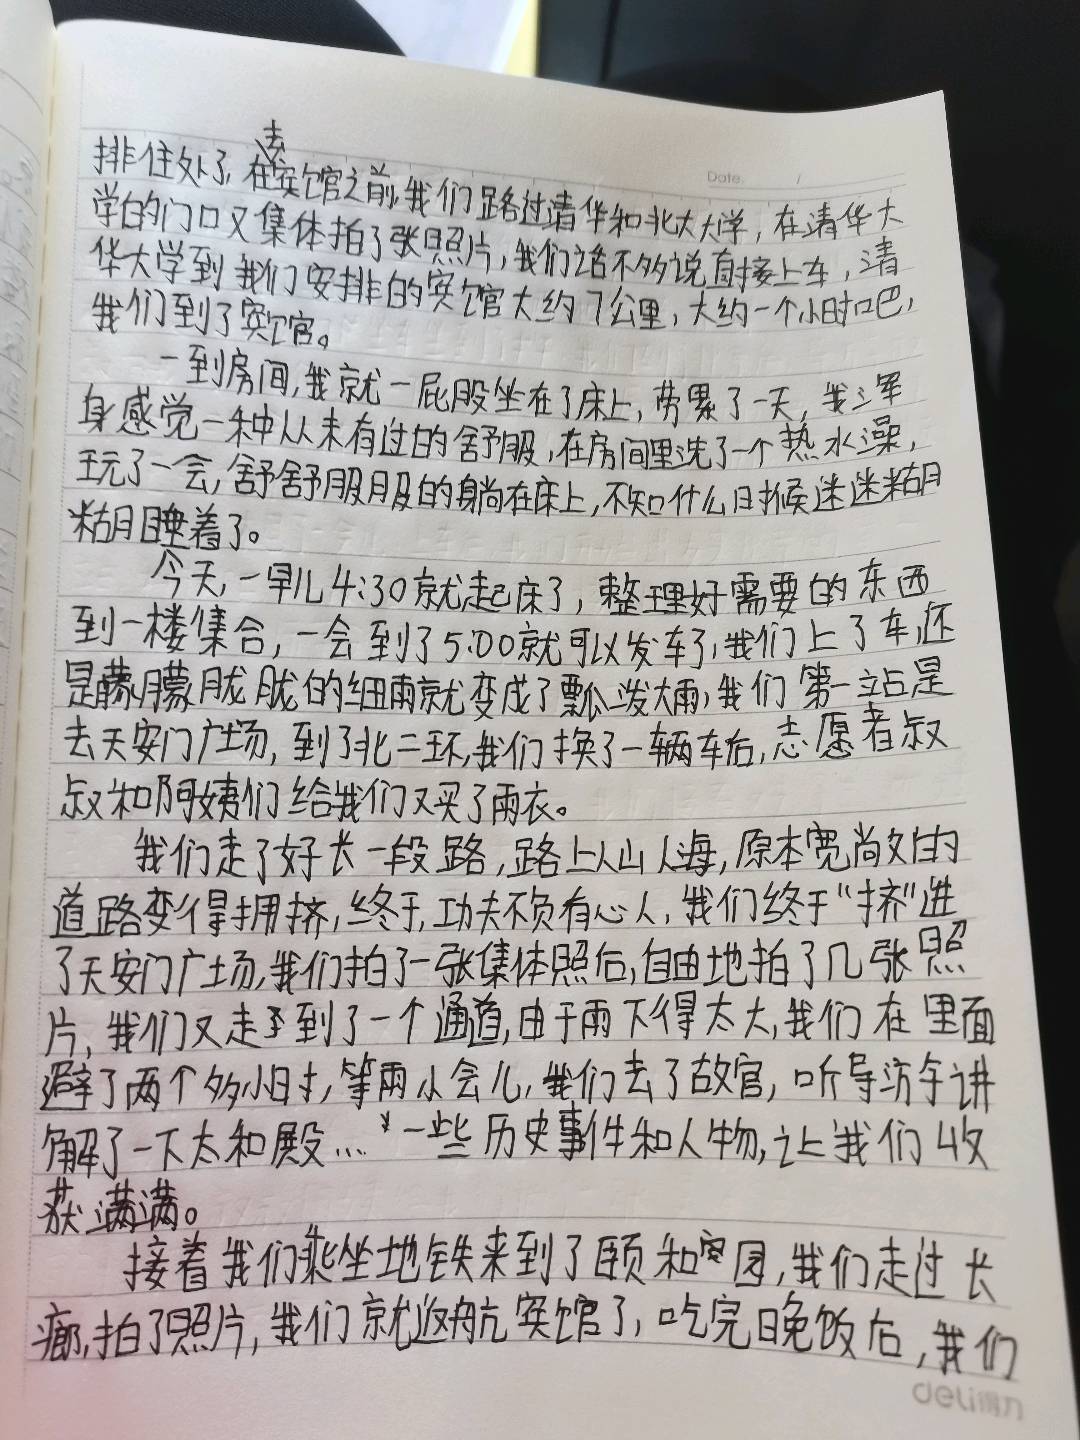 Date. /
排住处了,在去宾馆之前,我们路过清华和北大大学,在清华大
学的门口又集体拍了张照片,我们话不多说直接上车,清
华大学到我们安排的宾馆大约7公里,大约一个小时吧,
我们到了宾馆。
一到房间,我就一屁股坐在了床上,劳累了一天,我浑
身感觉一种从未有过的舒服,在房间里洗了一个热水澡,
玩了一会,舒舒服服的躺在床上,不知什么时候迷迷糊
糊睡着了。
今天,一早儿4:30就起床了,整理好需要的东西
到一楼集合,一会到了5:00就可以发车了,我们上了车,还
是朦朦胧胧的细雨就变成了瓢泼大雨,我们第一站是
去天安门广场,到了北二环,我们换了一辆车后,志愿者叔
叔和阿姨们给我们又买了雨衣。
我们走了好长一段路,路上人山人海,原本宽敞的
道路变得拥挤,终于,功夫不负有心人,我们终于“挤”进
了天安门广场,我们拍了一张集体照后,自由地拍了几张照
片,我们又走到了一个通道,由于雨下得太大,我们在里面
避了两个多小时,等雨小会儿,我们去了故宫,听导游讲
解了一下太和殿...一些历史事件和人物,让我们收
获满满。
接着我们乘坐地铁来到了颐和园,我们走过长
廊,拍了照片,我们就返航宾馆了,吃完晚饭后,我们
deli得力